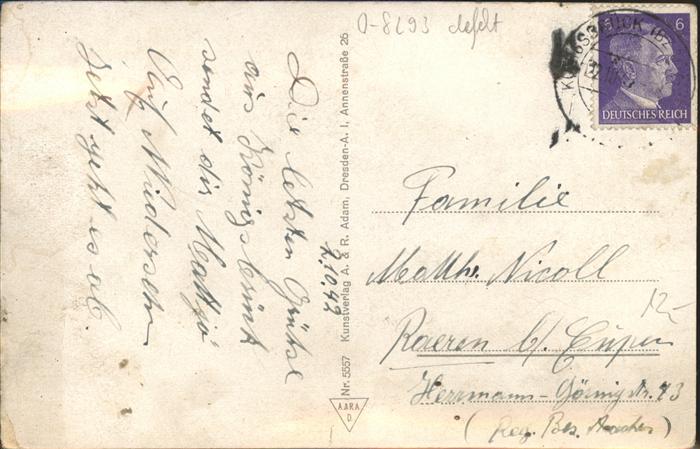 O-8293 defekt
KÖNIGSBRÜCK (BZ
6
DEUTSCHES REICH
2.10.42
Die letzten Grüße
aus Königsbrück
sendet dir Mathjö
Auf Wiedersehn
Jetzt geht es ab
Nr. 5557 Kunstverlag A. & R. Adam, Dresden-A. I, Annenstraße 26
A.A.R.A.
D.
Familie
Matth. Nicoll
Raeren b/ Eupen
12-
Herrmann-Göringstr. 73
(Reg. Bez. Aachen)